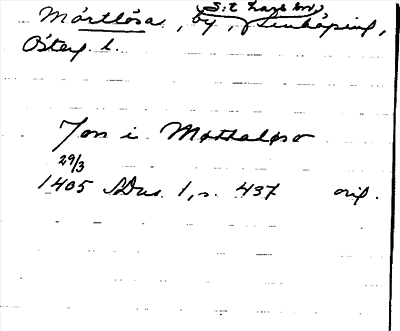 Mörtlösa, by, S:t Lars sn, Linköping,
Österg. l.
Jon i Mørtaløso
29/3
1405 SDns. 1, s. 437 orig.